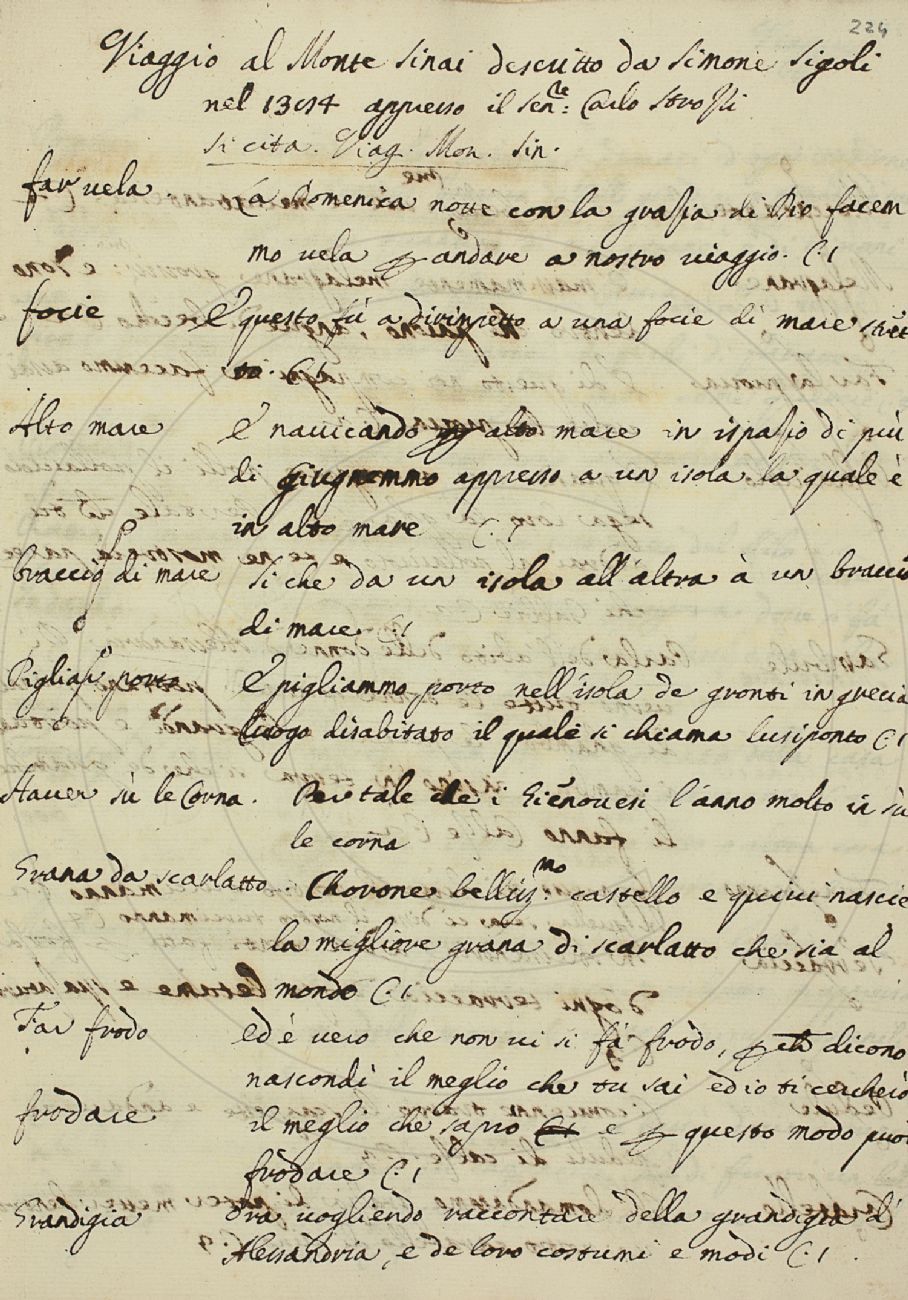 224
Viaggio al Monte Sinai descritto da Simone Sigoli
nel 1384 appresso il Sen.re Carlo Strozzi
si cita. Viag. Mon. Sin.
far vela La Domenica notte con la grazia di Dio facem
mo vela p andare a nostro viaggio. C. 1
focie E questo fù a dirimpetto a una focie di mare stret
ta. C. 1
Alto mare E navicando p alto mare in ispazio di più
di giugnemmo appresso a un isola la quale è
in alto mare C. 1
braccio di mare Si che da un isola all'altra à un braccio
di mare C. 1
Pigliar porto E pigliammo porto nell'isola de gronti in grecia
luogo disabitato il quale si chiama lusiponto C. 1
Haver sù le Corna. Per tale che i Gienovesi l'anno molto in sù
le corna
Grana da scarlatto. Chorone belliss.mo castello e quivi nascie
la migliore grana di scarlatto che sia al
mondo C. 1
Far frodo ed è vero che non vi si fà frodo, p che dicono
nascondi il meglio che tu sai ed io ti cercherò
frodare il meglio che saprò e p questo modo può
frodare C. 1
Grandigia Ora vogliendo raccontare della grandigia d'
Alessandria, e de loro costumi e modi C. 1.